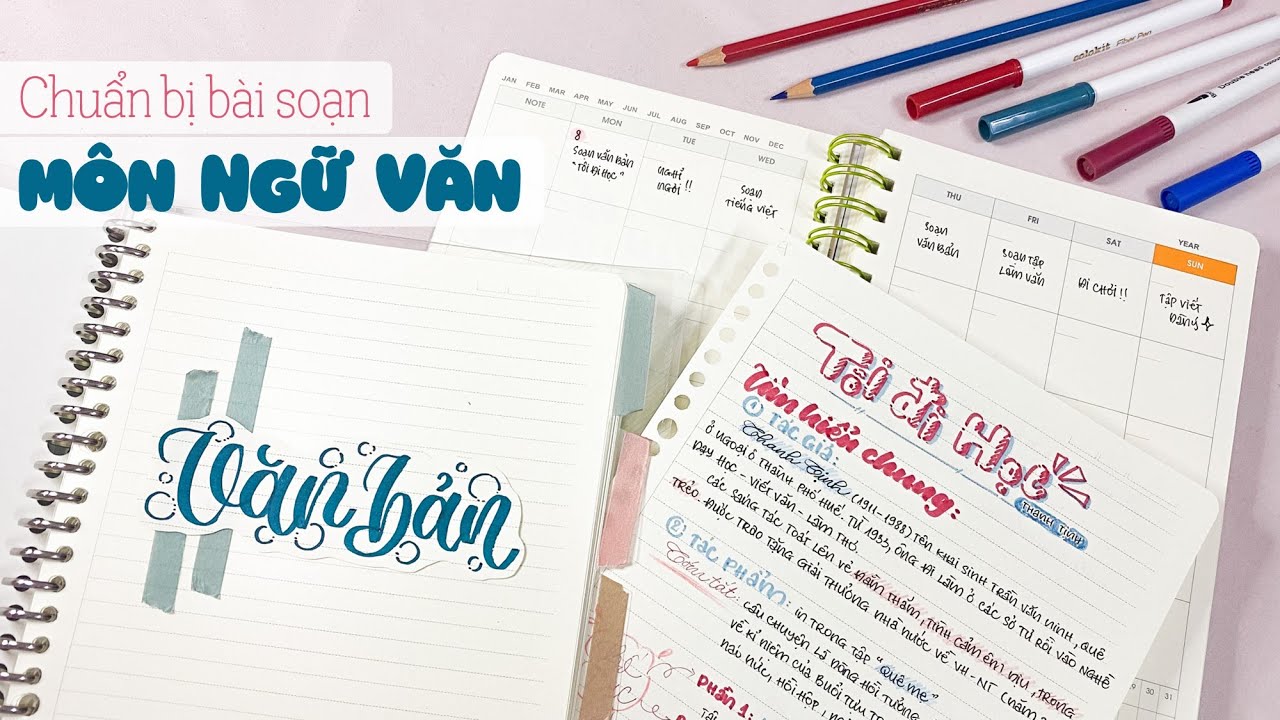 Chuẩn bị bài soạn
MÔN NGỮ VĂN
JAN FEB MAR APR MAY JUN JUL AUG SEP OCT NOV DEC
NOTE MON TUE WED
8
Soạn văn bản
"Tôi đi học"
Nghỉ
ngơi !!
Soạn
tiếng việt
THU FRI SAT SUN
YEAR
Soạn
văn bản
Soạn tập
làm văn
Đi chơi !!
Tập viết
colokit Fiber Pen
Văn bản
Tôi đi Học
Thanh Tịnh
Văn hiển chung:
1 Tác giả:
Thanh Tịnh (1911-1988) tên khai sinh Trần Văn Ninh, quê
ở ngoại ô thành phố Huế. Từ 1933, ông đi làm ở các sở tư rồi vào nghề
dạy học - viết văn - làm thơ.
các sáng tác toát lên vẻ đằm thắm, tình cảm êm dịu, trong
trẻo. Được trao tặng giải thưởng nhà nước về VH-NT
2 Tác phẩm: in trong tập "Quê mẹ"
Tóm tắt:
câu chuyện là dòng hồi tưởng
về kỉ niệm của buổi tựu
náo nức, hồi hộp,
Phần 1:
30 31